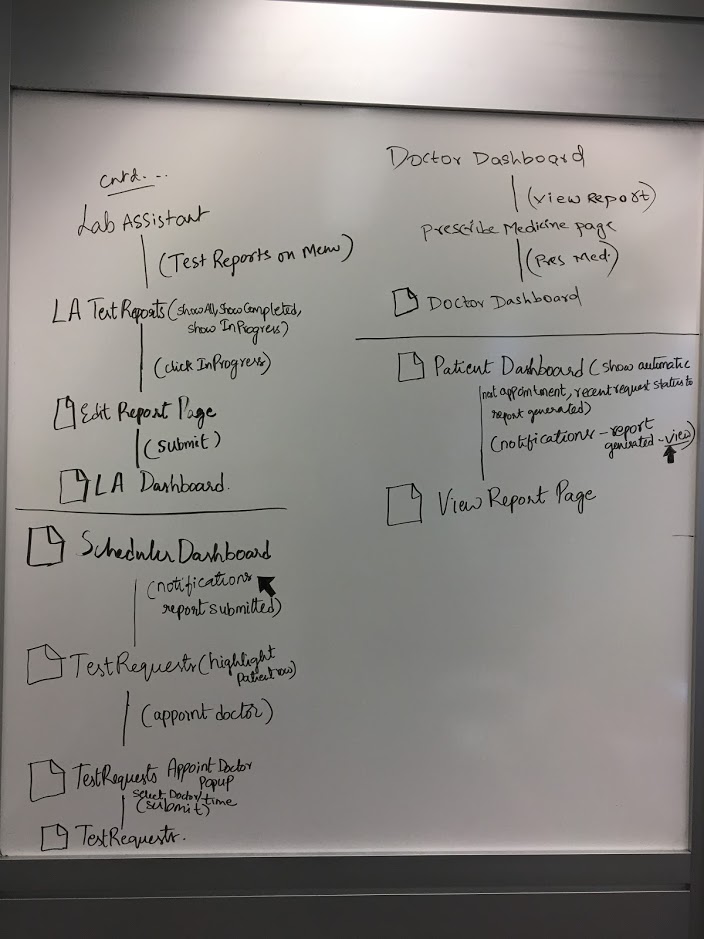 Cntd....
Lab Assistant
(Test Reports on Menu)
LA Test Reports (show All, Show Completed,
show In Progress)
(click In Progress)
Edit Report Page
(submit)
LA Dashboard.
Scheduler Dashboard
(notifications
report submitted)
Test Requests (highlight
patient row)
(appoint doctor)
Test Requests Appoint Doctor
Popup
select Doctor/time
(submit)
Test Requests.
Doctor Dashboard
(view Report)
Prescribe Medicine page
(Pres Med.)
Doctor Dashboard
Patient Dashboard (show automatic
appointment, recent request status to
report generated)
(notifications - report
generated - view)
View Report Page